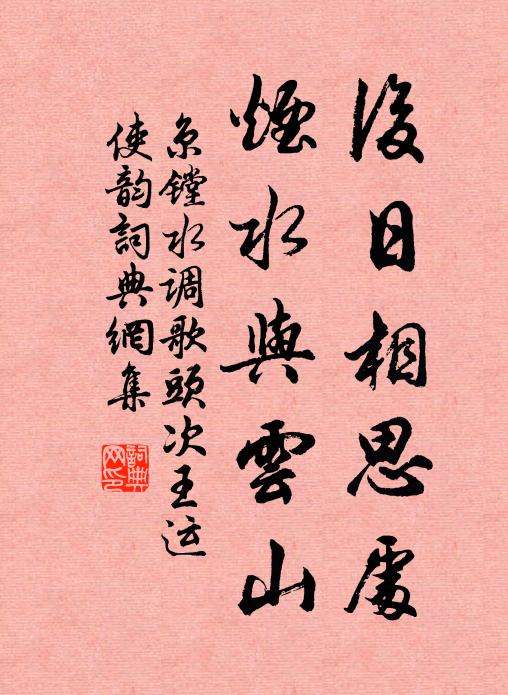 後日相思處
煙水與雲山
京鏜水调歌頭次王运
使韵詞典網集
詞典
网印